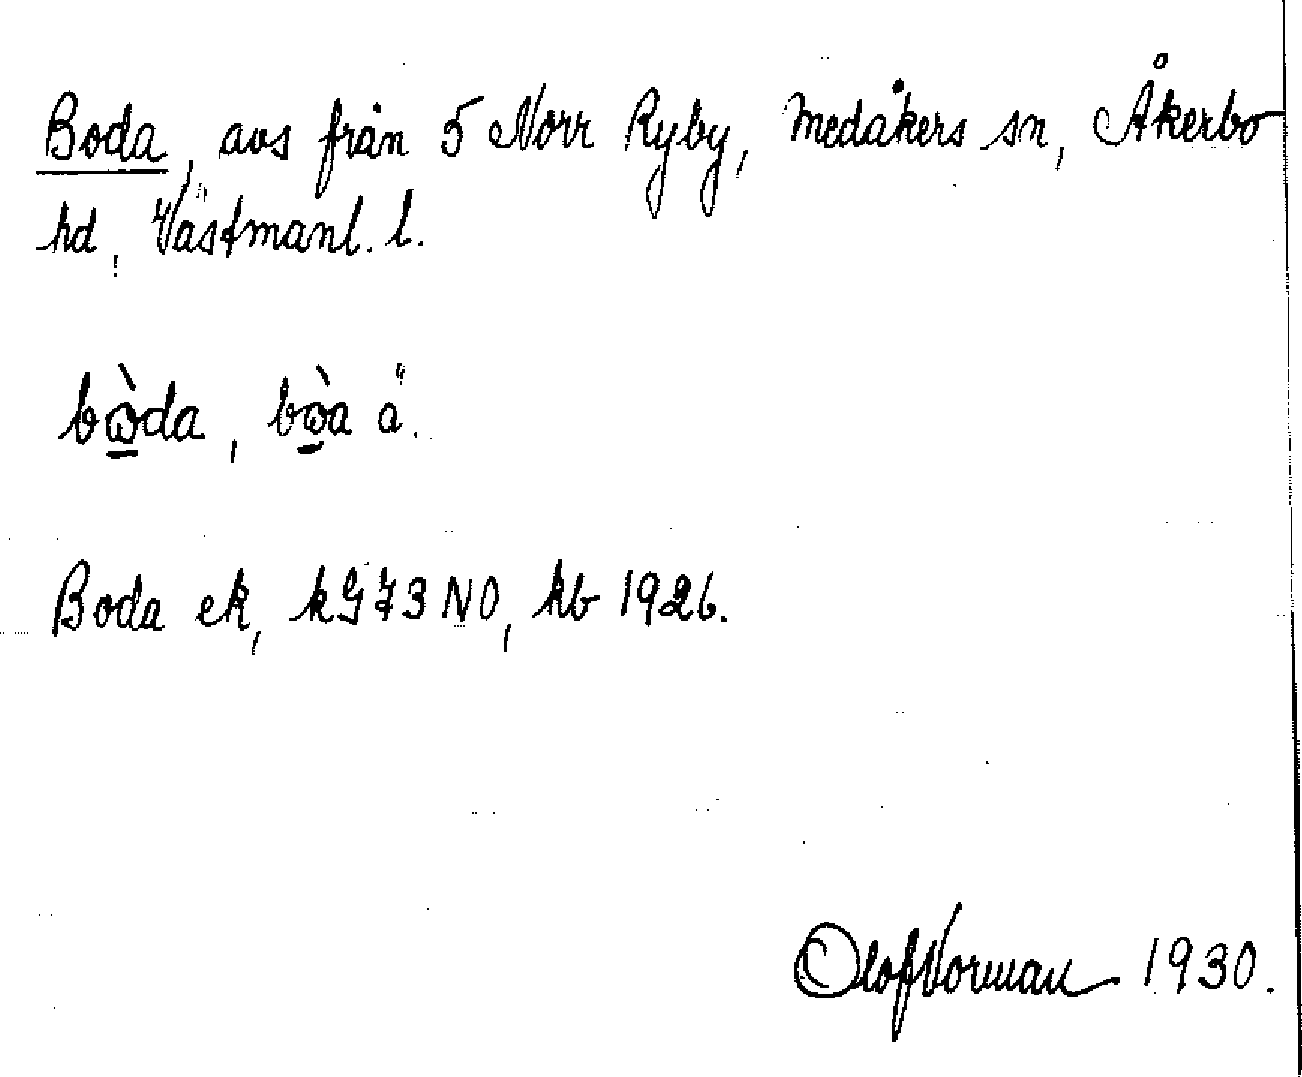 Boda, avs från 5 Norr Ryby, Medåkers sn, Åkerbo
hd, Västmanl. l.
bὼ̱da, bὼ̱a ä.
Boda ek, kG73NO, kb 1926.
Olof Norman 1930.